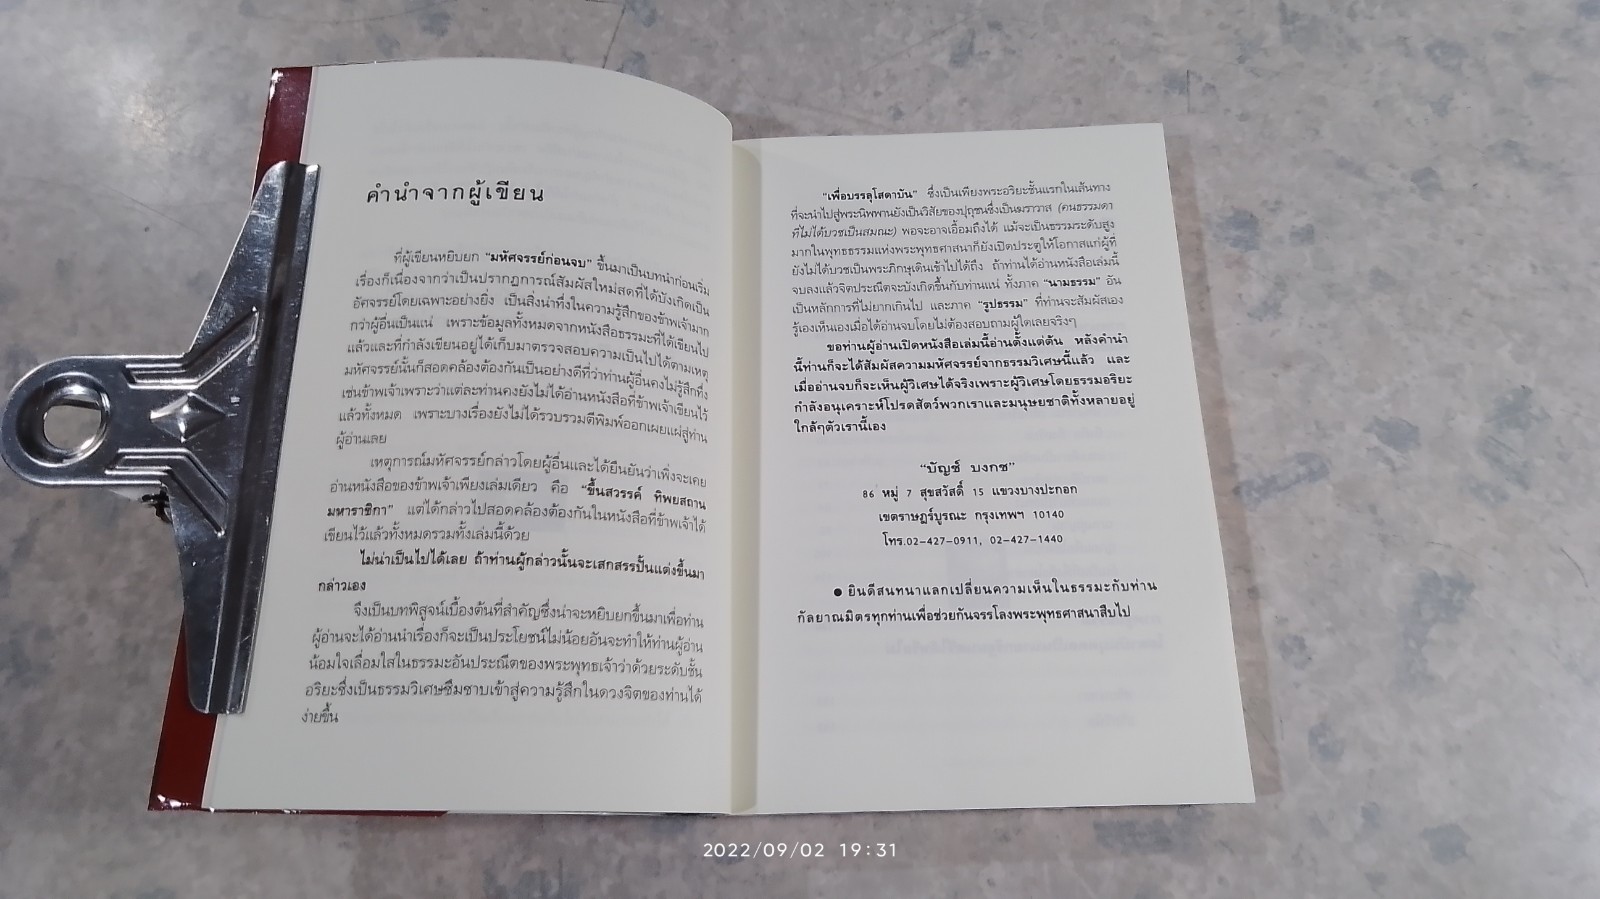 คำนำจากผู้เขียน
ที่ผู้เขียนหยิบยก “มหัศจรรย์ก่อนจบ” ขึ้นมาเป็นบทนำก่อนเริ่ม
เรื่องก็เนื่องจากว่าเป็นปรากฏการณ์สัมผัสใหม่สดที่ได้บังเกิดเป็น
อัศจรรย์โดยเฉพาะอย่างยิ่ง เป็นสิ่งน่าทึ่งในความรู้สึกของข้าพเจ้ามาก
กว่าผู้อื่นเป็นแน่ เพราะข้อมูลทั้งหมดจากหนังสือธรรมะที่ได้เขียนไป
แล้วและที่กำลังเขียนอยู่ได้เก็บมาตรวจสอบความเป็นไปได้ตามเหตุ
มหัศจรรย์นั้นก็สอดคล้องต้องกันเป็นอย่างดีที่ว่าท่านผู้อื่นคงไม่รู้สึกทึ่ง
เช่นข้าพเจ้าเพราะว่าแต่ละท่านคงยังไม่ได้อ่านหนังสือที่ข้าพเจ้าเขียนไว้
แล้วทั้งหมด เพราะบางเรื่องยังไม่ได้รวบรวมตีพิมพ์ออกเผยแผ่สู่ท่าน
ผู้อ่านเลย
เหตุการณ์มหัศจรรย์กล่าวโดยผู้อื่นและได้ยืนยันว่าเพิ่งจะเคย
อ่านหนังสือของข้าพเจ้าเพียงเล่มเดียว คือ “ขึ้นสวรรค์ ทิพยสถาน
มหาราชิกา” แต่ได้กล่าวไปสอดคล้องต้องกันในหนังสือที่ข้าพเจ้าได้
เขียนไว้แล้วทั้งหมดรวมทั้งเล่มนี้ด้วย
ไม่น่าเป็นไปได้เลย ถ้าท่านผู้กล่าวนั้นจะเสกสรรปั้นแต่งขึ้นมา
กล่าวเอง
จึงเป็นบทพิสูจน์เบื้องต้นที่สำคัญซึ่งน่าจะหยิบยกขึ้นมาเพื่อท่าน
ผู้อ่านจะได้อ่านนำเรื่องก็จะเป็นประโยชน์ไม่น้อยอันจะทำให้ท่านผู้อ่าน
น้อมใจเลื่อมใสในธรรมะอันประณีตของพระพุทธเจ้าว่าด้วยระดับชั้น
อริยะซึ่งเป็นธรรมวิเศษซึมซาบเข้าสู่ความรู้สึกในดวงจิตของท่านได้
ง่ายขึ้น
“เพื่อบรรลุโสดาบัน” ซึ่งเป็นเพียงพระอริยะชั้นแรกในเส้นทาง
ที่จะนำไปสู่พระนิพพานยังเป็นวิสัยของปุถุชนซึ่งเป็นฆราวาส (คนธรรมดา
ที่ไม่ได้บวชเป็นสมณะ) พอจะอาจเอื้อมถึงได้ แม้จะเป็นธรรมระดับสูง
มากในพุทธธรรมแห่งพระพุทธศาสนาก็ยังเปิดประตูให้โอกาสแก่ผู้ที่
ยังไม่ได้บวชเป็นพระภิกษุเดินเข้าไปได้ถึง ถ้าท่านได้อ่านหนังสือเล่มนี้
จบลงแล้วจิตประณีตจะบังเกิดขึ้นกับท่านแน่ ทั้งภาค “นามธรรม” อัน
เป็นหลักการที่ไม่ยากเกินไป และภาค “รูปธรรม” ที่ท่านจะสัมผัสเอง
รู้เองเห็นเองเมื่อได้อ่านจบโดยไม่ต้องสอบถามผู้ใดเลยจริงๆ
ขอท่านผู้อ่านเปิดหนังสือเล่มนี้อ่านตั้งแต่ต้น หลังคำนำ
นี้ท่านก็จะได้สัมผัสความมหัศจรรย์จากธรรมวิเศษนี้แล้ว และ
เมื่ออ่านจบก็จะเห็นผู้วิเศษได้จริงเพราะผู้วิเศษโดยธรรมอริยะ
กำลังอนุเคราะห์โปรดสัตว์พวกเราและมนุษยชาติทั้งหลายอยู่
ใกล้ๆตัวเรานี้เอง
“บัญช์ บงกช”
86 หมู่ 7 สุขสวัสดิ์ 15 แขวงบางปะกอก
เขตราษฎร์บูรณะ กรุงเทพฯ 10140
โทร.02-427-0911, 02-427-1440
● ยินดีสนทนาแลกเปลี่ยนความเห็นในธรรมะกับท่าน
กัลยาณมิตรทุกท่านเพื่อช่วยกันจรรโลงพระพุทธศาสนาสืบไป
2022/09/02 19:31